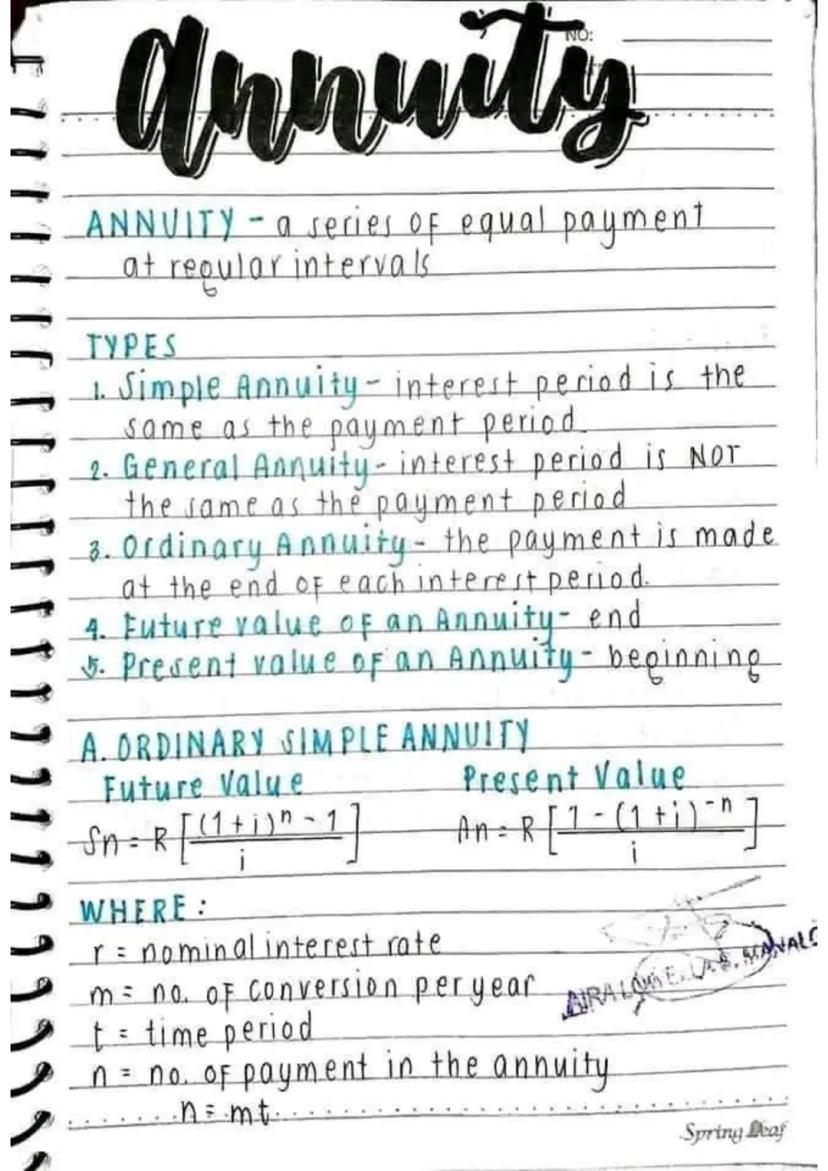 Annuity
NO:
ANNUITY - a series of equal payment
at regular intervals
TYPES
1. Simple Annuity - interest period is the
same as the payment period.
2. General Annuity - interest period is NOT
the same as the payment period
3. Ordinary Annuity - the payment is made
at the end of each interest period.
4. Future value of an Annuity - end
5. Present value of an Annuity - beginning
A. ORDINARY SIMPLE ANNUITY
Future Value Present Value
Sn = R [(1+i)^n - 1 / i] An = R [1 - (1+i)^-n / i]
WHERE:
r = nominal interest rate
m = no. of conversion per year
t = time period
n = no. of payment in the annuity
n = mt
Spring Leaf